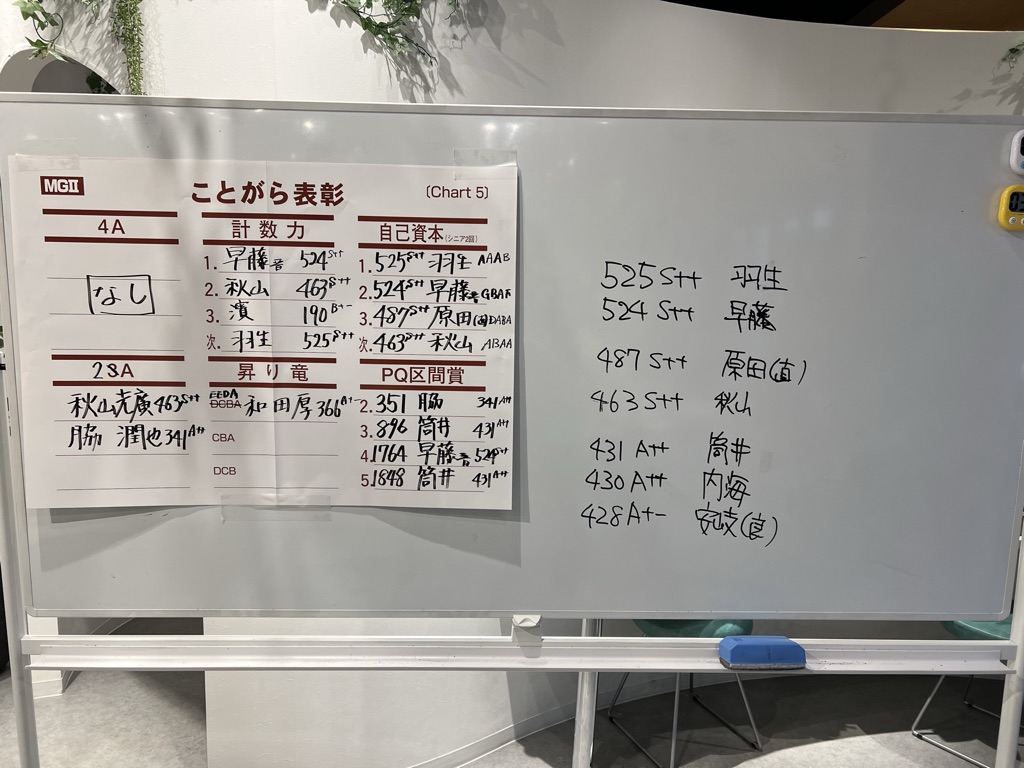 MGⅡ
ことがら表彰
〔Chart 5〕
4A
なし
23A
秋山 463S++
脇 潤也 341A++
計数力
1. 早藤 524S++
2. 秋山 463S++
3. 濱 190 B+-
次. 羽生 525S++
昇り竜
EEDA
DCBA 和田厚 366A+-
CBA
DCB
自己資本(シニア2回)
1. 525S++ 羽生 AAAB
2. 524S++ 早藤
3. 487S++ 原田(直) DABA
次. 463S++ 秋山 ABAA
PQ区間賞
2. 351 脇 341A++
3. 896 筒井 431A++
4. 1764 早藤 524S++
5. 1848 筒井 431A++
525S++ 羽生
524S++ 早藤
487S++ 原田(直)
463S++ 秋山
431A++ 筒井
430A++ 内海
428A+- 安岐(良)